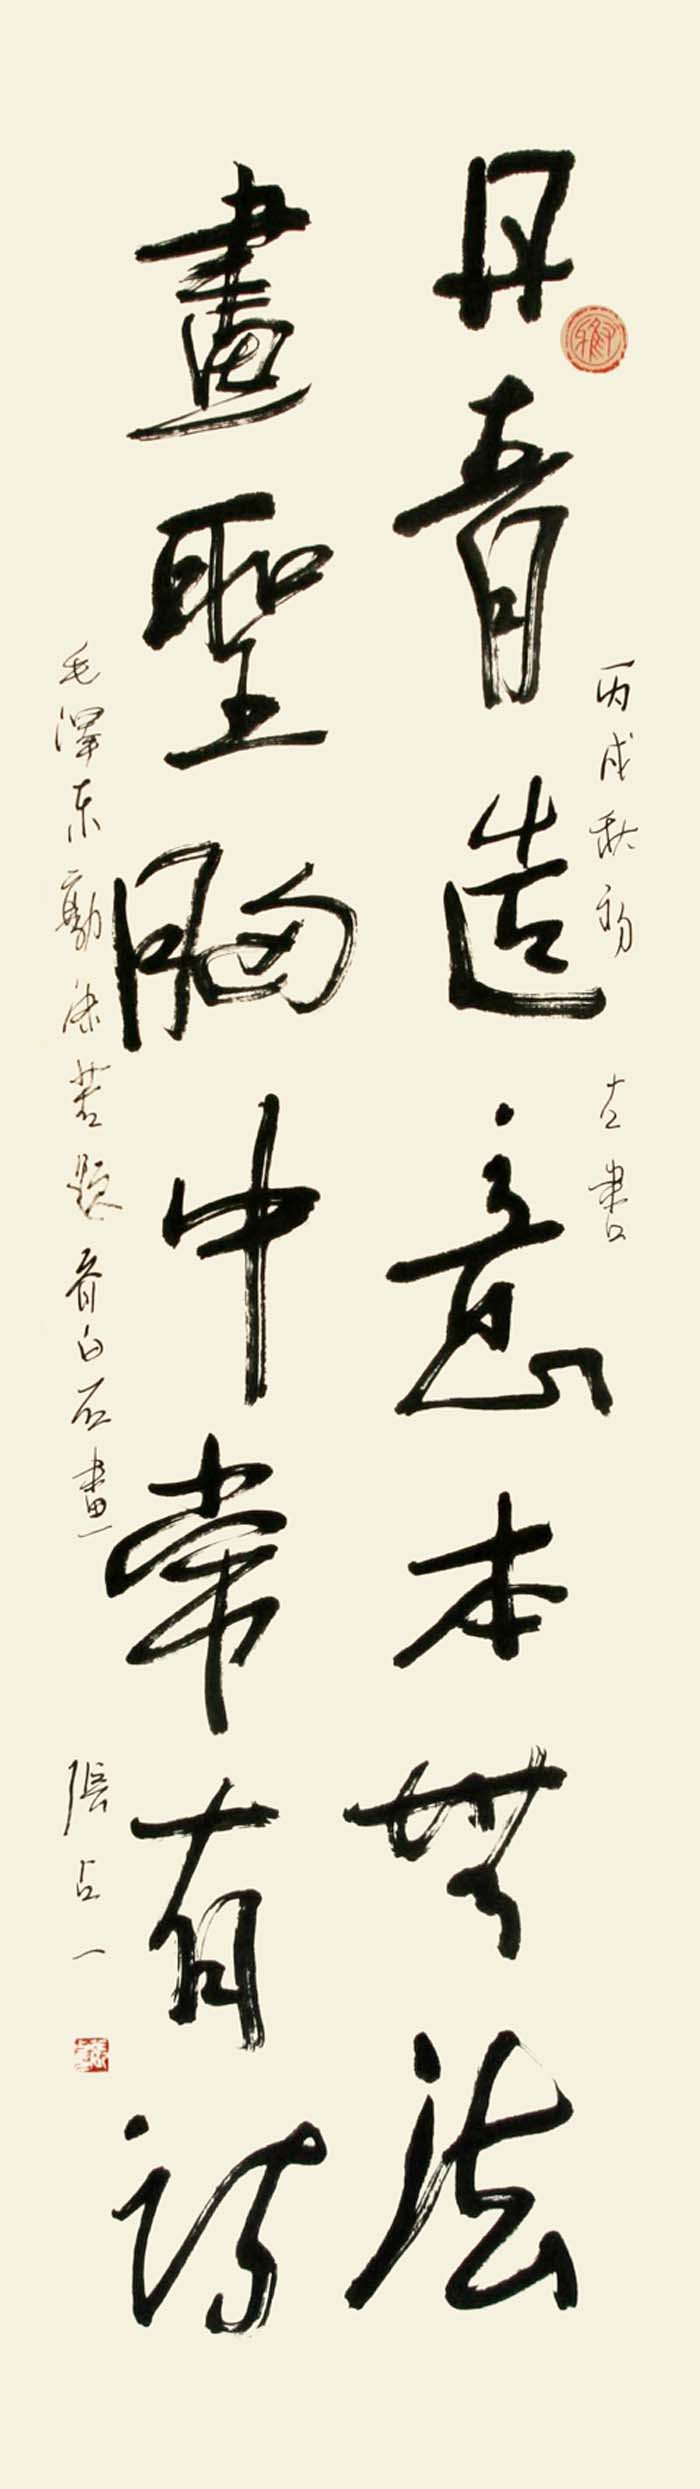 丙戌秋初 左書
丹青造意本無法
畫聖胸中常有詩
毛澤东郭沫若題齊白石畫
張占一